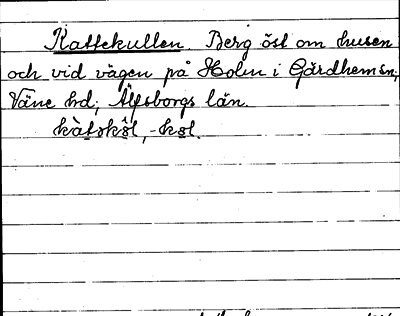 Kattekullen. Berg öst om husen
och vid vägen på Holm i Gärdhemsn,
Väne hd, Älfsborgs län.